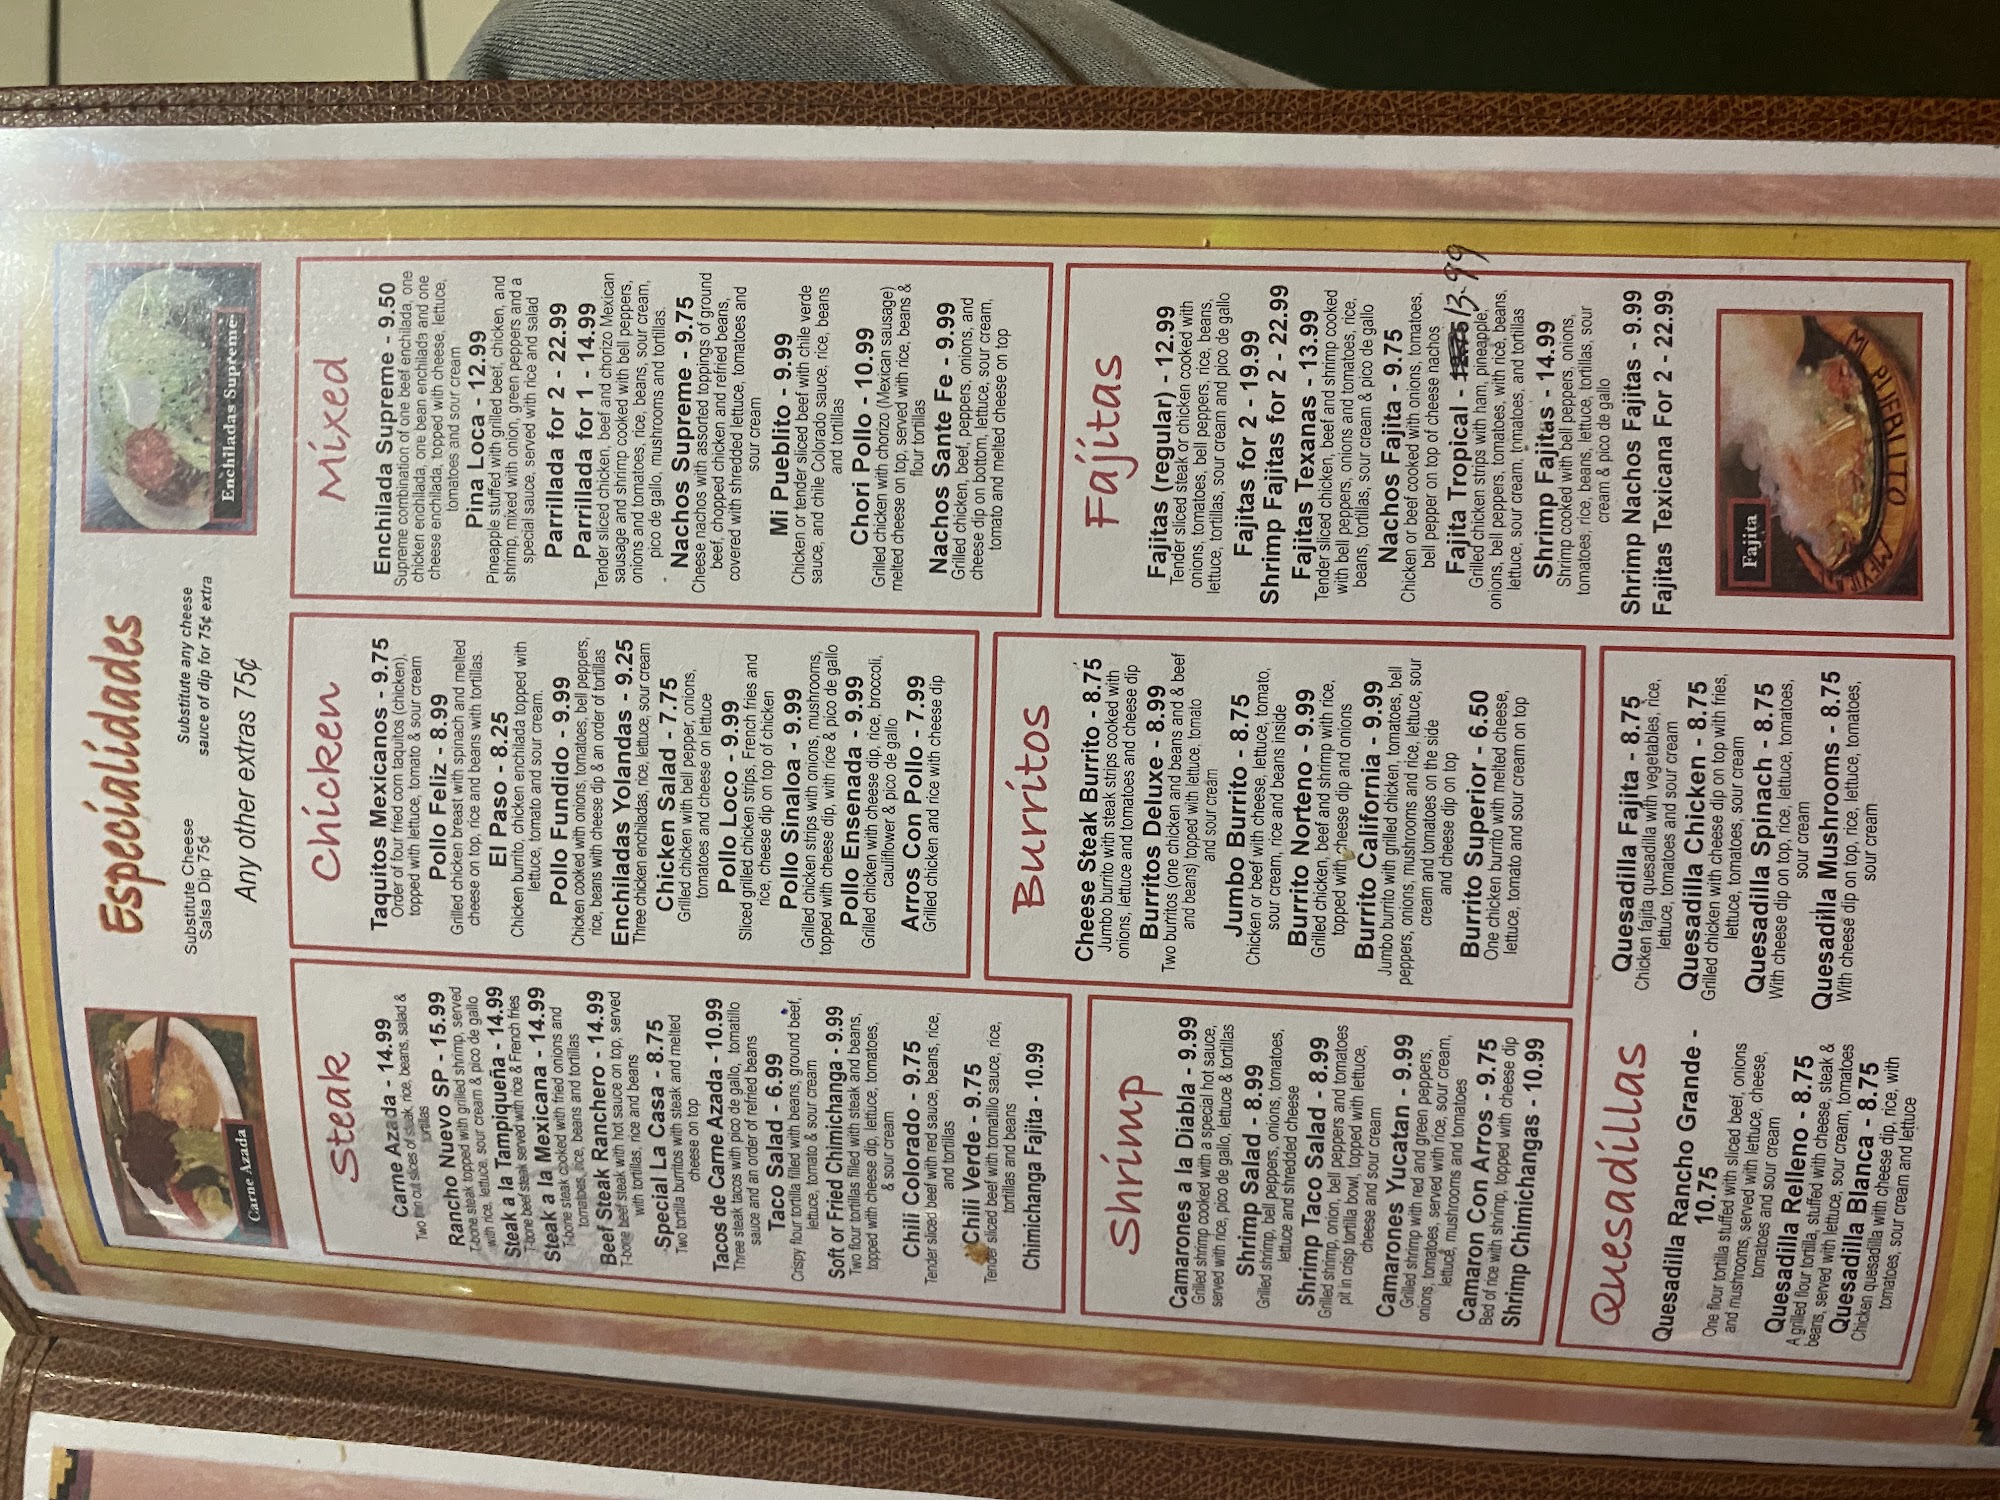 Especialidades
Substitute Cheese
Salsa Dip 75¢
Substitute any cheese
sauce of dip for 75¢ extra
Any other extras 75¢
Carne Azada
Enchiladas Supreme
Steak
Carne Azada - 14.99
Two thin cut slices of steak, rice, beans, salad &
tortillas
Rancho Nuevo SP - 15.99
T-bone steak topped with grilled shrimp, served
with rice, lettuce, sour cream & pico de gallo
Steak a la Tampiqueña - 14.99
T-bone beef steak served with rice & French fries
Steak a la Mexicana - 14.99
T-bone steak cooked with fried onions and
tomatoes, rice, beans and tortillas
Beef Steak Ranchero - 14.99
T-bone beef steak with hot sauce on top, served
with tortillas, rice and beans
Special La Casa - 8.75
Two tortilla burritos with steak and melted
cheese on top
Tacos de Carne Azada - 10.99
Three steak tacos with pico de gallo, tomatillo
sauce and an order of refried beans
Taco Salad - 6.99
Crispy flour tortilla filled with beans, ground beef,
lettuce, tomato & sour cream
Soft or Fried Chimichanga - 9.99
Two flour tortillas filled with steak and beans,
topped with cheese dip, lettuce, tomatoes,
& sour cream
Chili Colorado - 9.75
Tender sliced beef with red sauce, beans, rice,
and tortillas
Chili Verde - 9.75
Tender sliced beef with tomatillo sauce, rice,
tortillas and beans
Chimichanga Fajita - 10.99
Chicken
Taquitos Mexicanos - 9.75
Order of four fried corn taquitos (chicken),
topped with lettuce, tomato & sour cream
Pollo Feliz - 8.99
Grilled chicken breast with spinach and melted
cheese on top, rice and beans with tortillas.
El Paso - 8.25
Chicken burrito, chicken enchilada topped with
lettuce, tomato and sour cream.
Pollo Fundido - 9.99
Chicken cooked with onions, tomatoes, bell peppers,
rice, beans with cheese dip & an order of tortillas
Enchiladas Yolandas - 9.25
Three chicken enchiladas, rice, lettuce, sour cream
Chicken Salad - 7.75
Grilled chicken with bell pepper, onions,
tomatoes and cheese on lettuce
Pollo Loco - 9.99
Sliced grilled chicken strips, French fries and
rice, cheese dip on top of chicken
Pollo Sinaloa - 9.99
Grilled chicken strips with onions, mushrooms,
topped with cheese dip, with rice & pico de gallo
Pollo Ensenada - 9.99
Grilled chicken with cheese dip, rice, broccoli,
cauliflower & pico de gallo
Arros Con Pollo - 7.99
Grilled chicken and rice with cheese dip
Mixed
Enchilada Supreme - 9.50
Supreme combination of one beef enchilada, one
chicken enchilada, one bean enchilada and one
cheese enchilada, topped with cheese, lettuce,
tomatoes and sour cream
Pina Loca - 12.99
Pineapple stuffed with grilled beef, chicken, and
shrimp, mixed with onion, green peppers and a
special sauce, served with rice and salad
Parrillada for 2 - 22.99
Parrillada for 1 - 14.99
Tender sliced chicken, beef and chorizo Mexican
sausage and shrimp cooked with bell peppers,
onions and tomatoes, rice, beans, sour cream,
pico de gallo, mushrooms and tortillas.
Nachos Supreme - 9.75
Cheese nachos with assorted toppings of ground
beef, chopped chicken and refried beans,
covered with shredded lettuce, tomatoes and
sour cream
Mi Pueblito - 9.99
Chicken or tender sliced beef with chile verde
sauce, and chile Colorado sauce, rice, beans
and tortillas
Chori Pollo - 10.99
Grilled chicken with chorizo (Mexican sausage)
melted cheese on top, served with rice, beans &
flour tortillas
Nachos Sante Fe - 9.99
Grilled chicken, beef, peppers, onions, and
cheese dip on bottom, lettuce, sour cream,
tomato and melted cheese on top
Shrimp
Camarones a la Diabla - 9.99
Grilled shrimp cooked with a special hot sauce,
served with rice, pico de gallo, lettuce & tortillas
Shrimp Salad - 8.99
Grilled shrimp, bell peppers, onions, tomatoes,
lettuce and shredded cheese
Shrimp Taco Salad - 8.99
Grilled shrimp, onion, bell peppers and tomatoes
pit in crisp tortilla bowl, topped with lettuce,
cheese and sour cream
Camarones Yucatan - 9.99
Grilled shrimp with red and green peppers,
onions, tomatoes, served with rice, sour cream,
lettuce, mushrooms and tomatoes
Camaron Con Arros - 9.75
Bed of rice with shrimp, topped with cheese dip
Shrimp Chimichangas - 10.99
Burritos
Cheese Steak Burrito - 8.75
Jumbo burrito with steak strips cooked with
onions, lettuce and tomatoes and cheese dip
Burritos Deluxe - 8.99
Two burritos (one chicken and beans & beef
and beans) topped with lettuce, tomato
and sour cream
Jumbo Burrito - 8.75
Chicken or beef with cheese, lettuce, tomato,
sour cream, rice and beans inside
Burrito Norteno - 9.99
Grilled chicken, beef and shrimp with rice,
topped with cheese dip and onions
Burrito California - 9.99
Jumbo burrito with grilled chicken, tomatoes, bell
peppers, onions, mushrooms and rice, lettuce, sour
cream and tomatoes on the side
and cheese dip on top
Burrito Superior - 6.50
One chicken burrito with melted cheese,
lettuce, tomato and sour cream on top
Fajitas
Fajitas (regular) - 12.99
Tender sliced steak or chicken cooked with
onions, tomatoes, bell peppers, rice, beans,
lettuce, tortillas, sour cream and pico de gallo
Fajitas for 2 - 19.99
Shrimp Fajitas for 2 - 22.99
Fajitas Texanas - 13.99
Tender sliced chicken, beef and shrimp cooked
with bell peppers, onions and tomatoes, rice,
beans, tortillas, sour cream & pico de gallo
Nachos Fajita - 9.75
Chicken or beef cooked with onions, tomatoes,
bell pepper on top of cheese nachos
Fajita Tropical - 13.99
Grilled chicken strips with ham, pineapple,
onions, bell peppers, tomatoes, with rice, beans,
lettuce, sour cream, tomatoes, and tortillas
Shrimp Fajitas - 14.99
Shrimp cooked with bell peppers, onions,
tomatoes, rice, beans, lettuce, tortillas, sour
cream & pico de gallo
Shrimp Nachos Fajitas - 9.99
Fajitas Texicana For 2 - 22.99
Fajita
MI PUEBLITO
MEXICAN
Quesadillas
Quesadilla Rancho Grande -
10.75
One flour tortilla stuffed with sliced beef, onions
and mushrooms, served with lettuce, cheese,
tomatoes and sour cream
Quesadilla Relleno - 8.75
A grilled flour tortilla, stuffed with cheese, steak &
beans, served with lettuce, sour cream, tomatoes
Quesadilla Blanca - 8.75
Chicken quesadilla with cheese dip, rice, with
tomatoes, sour cream and lettuce
Quesadilla Fajita - 8.75
Chicken fajita quesadilla with vegetables, rice,
lettuce, tomatoes and sour cream
Quesadilla Chicken - 8.75
Grilled chicken with cheese dip on top with fries,
lettuce, tomatoes, sour cream
Quesadilla Spinach - 8.75
With cheese dip on top, rice, lettuce, tomatoes,
sour cream
Quesadilla Mushrooms - 8.75
With cheese dip on top, rice, lettuce, tomatoes,
sour cream